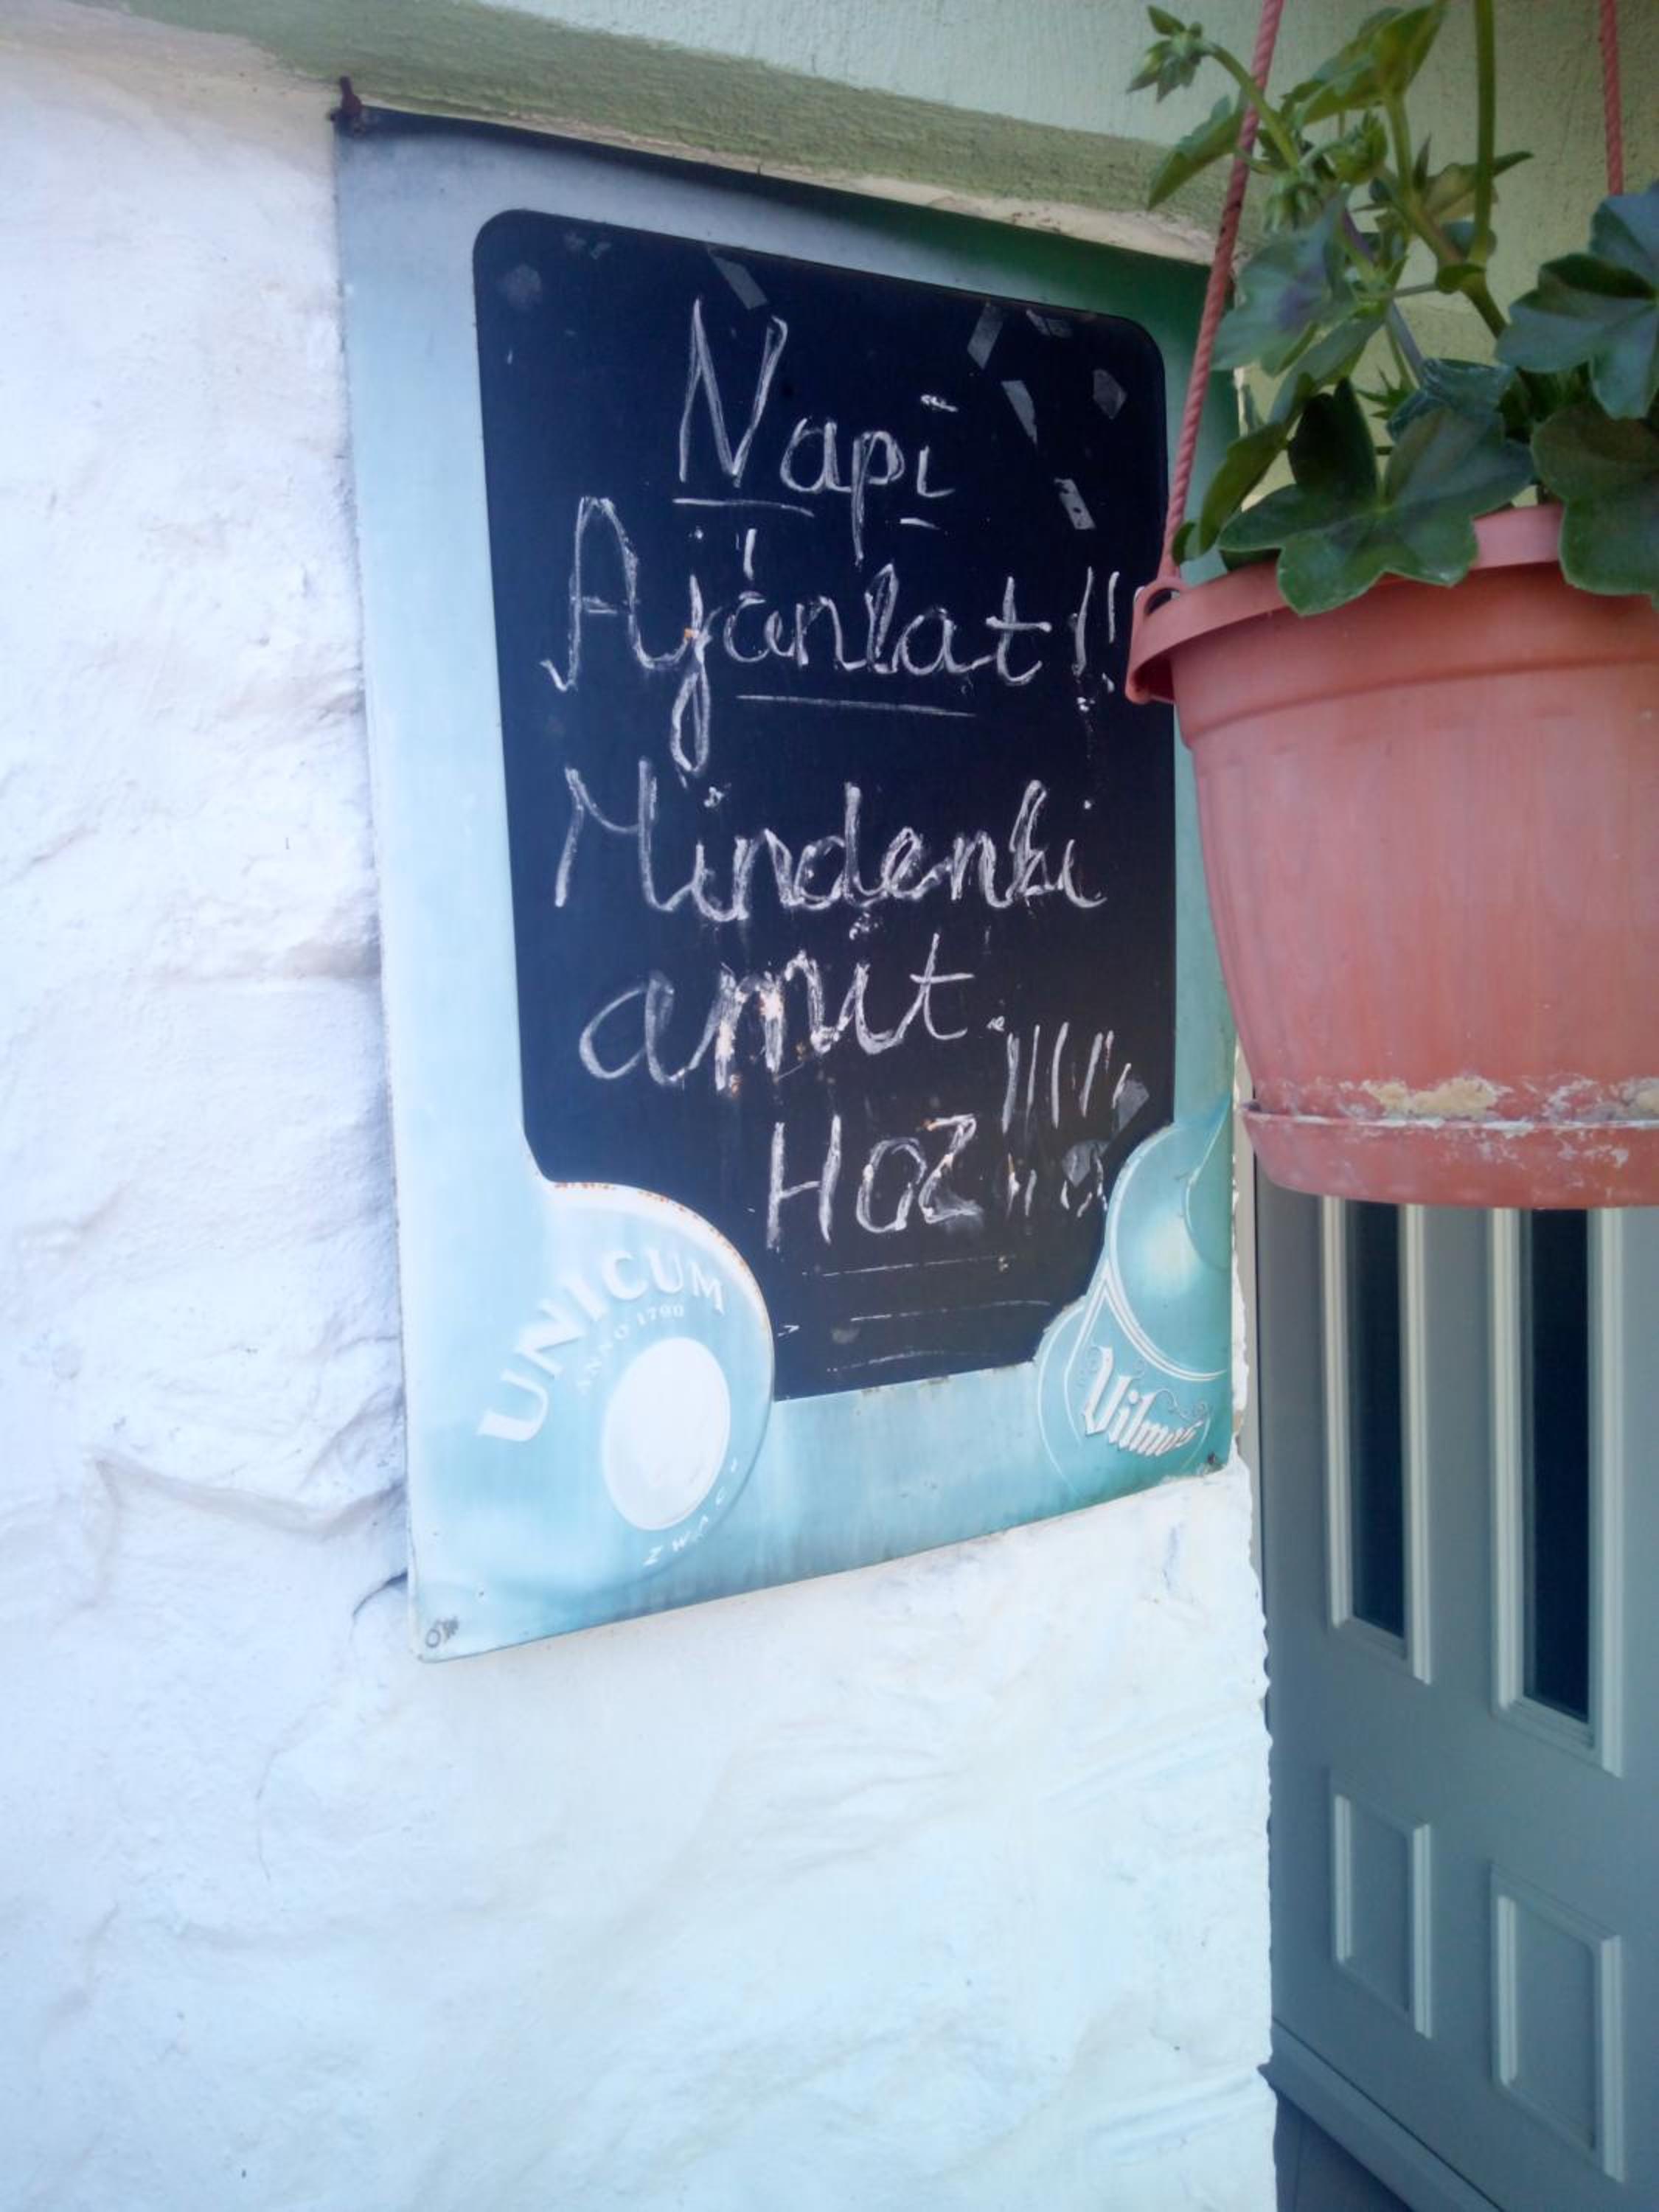 Napi
Ajánlat!!
Mindenki
amit
HOZ!!!!!
UNICUM
ANNO 1790
ZWACK
Vilmos